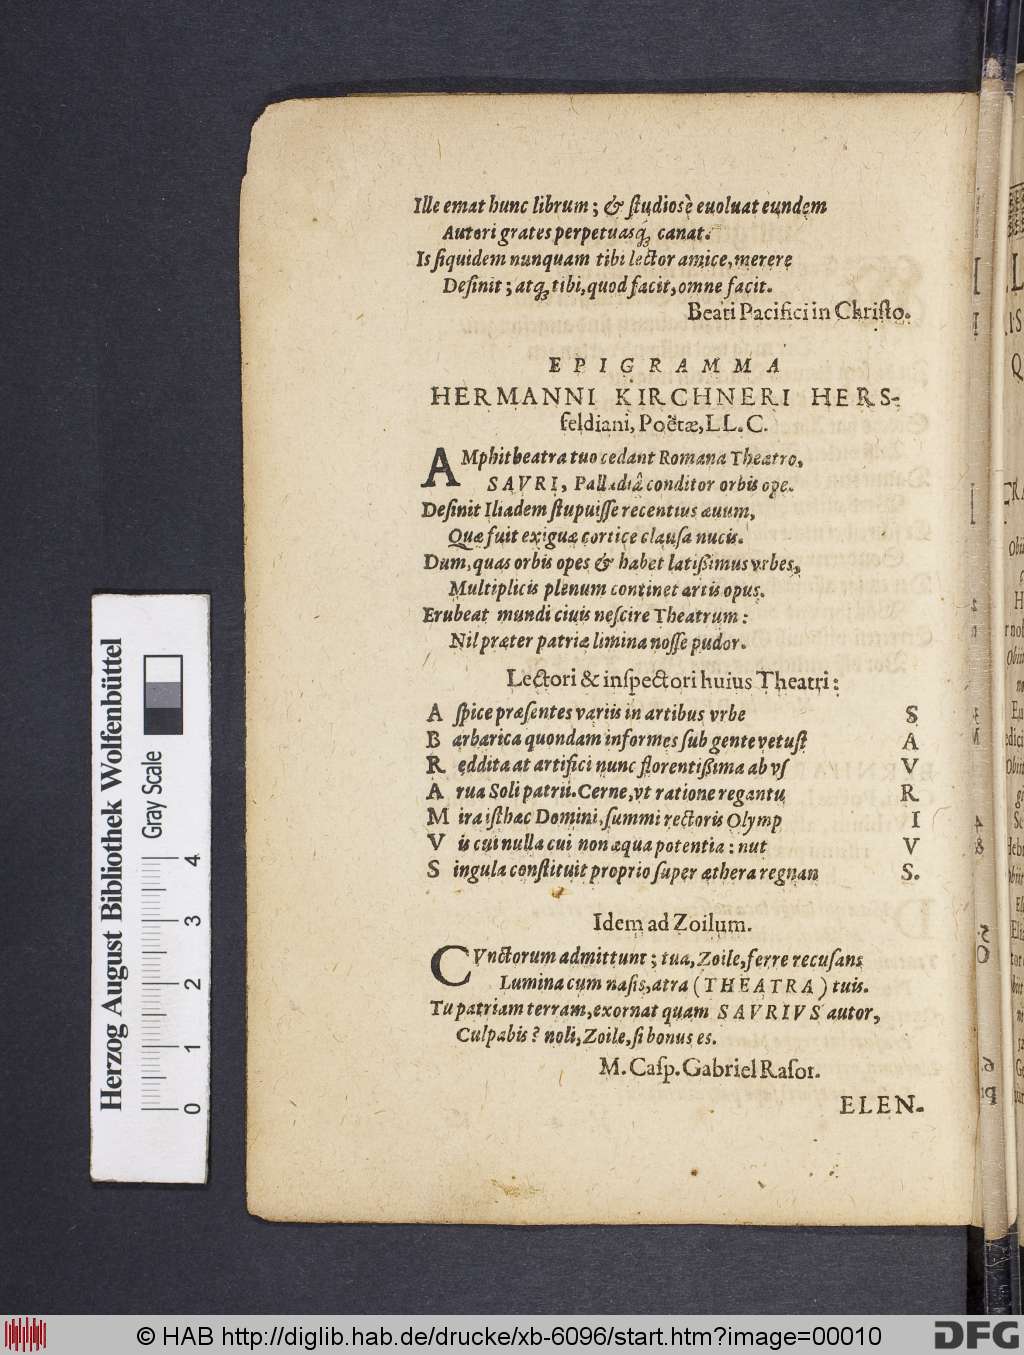 Ille emat hunc librum; & ſtudiosè euoluat eundem
Autori grates perpetuasq́ꝫ canat.
Is ſiquidem nunquam tibi lector amice, merere
Deſinit; atqꝫ tibi, quod facit, omne facit.
Beati Pacifici in Chriſto.
EPIGRAMMA
HERMANNI KIRCHNERI HERS-
feldiani, Poëtæ, LL. C.
AMphitheatra tuo cedant Romana Theatro,
SAVRI, Palladiâ conditor orbis ope.
Deſinit Iliadem ſtupuiſſe recentius æuum,
Quæ fuit exiguæ cortice clauſa nucis.
Dum, quas orbis opes & habet latißimus vrbes,
Multiplicis plenum continet artis opus.
Erubeat mundi ciuis neſcire Theatrum:
Nil præter patriæ limina noſſe pudor.
Lectori & inſpectori huius Theatri:
A ſpice præſentes variis in artibus vrbe S
B arbarica quondam informes ſub gente vetuſt A
R eddita at artifici nunc florentißima ab vſ V
A rua Soli patrii. Cerne, vt ratione regantu R
M ira iſthac Domini, ſummi rectoris Olymp I
V is cui nulla cui non æqua potentia: nut V
S ingula conſtituit proprio ſuper æthera regnan S.
Idem ad Zoilum.
CVnctorum admittunt; tua, Zoile, ferre recuſans
Lumina cum naſis, atra (THEATRA) tuis.
Tu patriam terram, exornat quam SAVRIVS autor,
Culpabis? noli, Zoile, ſi bonus es.
M. Caſp. Gabriel Raſor.
ELEN-
Herzog August Bibliothek Wolfenbüttel
Gray Scale
0 1 2 3 4
© HAB http://diglib.hab.de/drucke/xb-6096/start.htm?image=00010
DFG